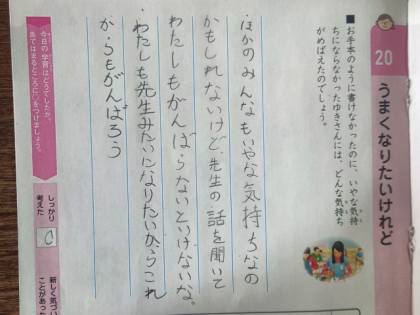 20
うまくなりたいけれど
■お手本のように書けなかったのに、いやな気持
ちにならなかったゆきさんには、どんな気持ち
がめばえたのでしょう。
・ほかのみんなもいやな気持ちなの
かもしれないけど、先生の話を聞いて
わたしもがんばらないといけないな。
・わたしも先生みたいになりたいからこれ
からもがんばろう
今日の学習はどうでしたか。
あてはまるところに○をつけましょう。
しっかり
考えた
新しく気づい
ことがあった